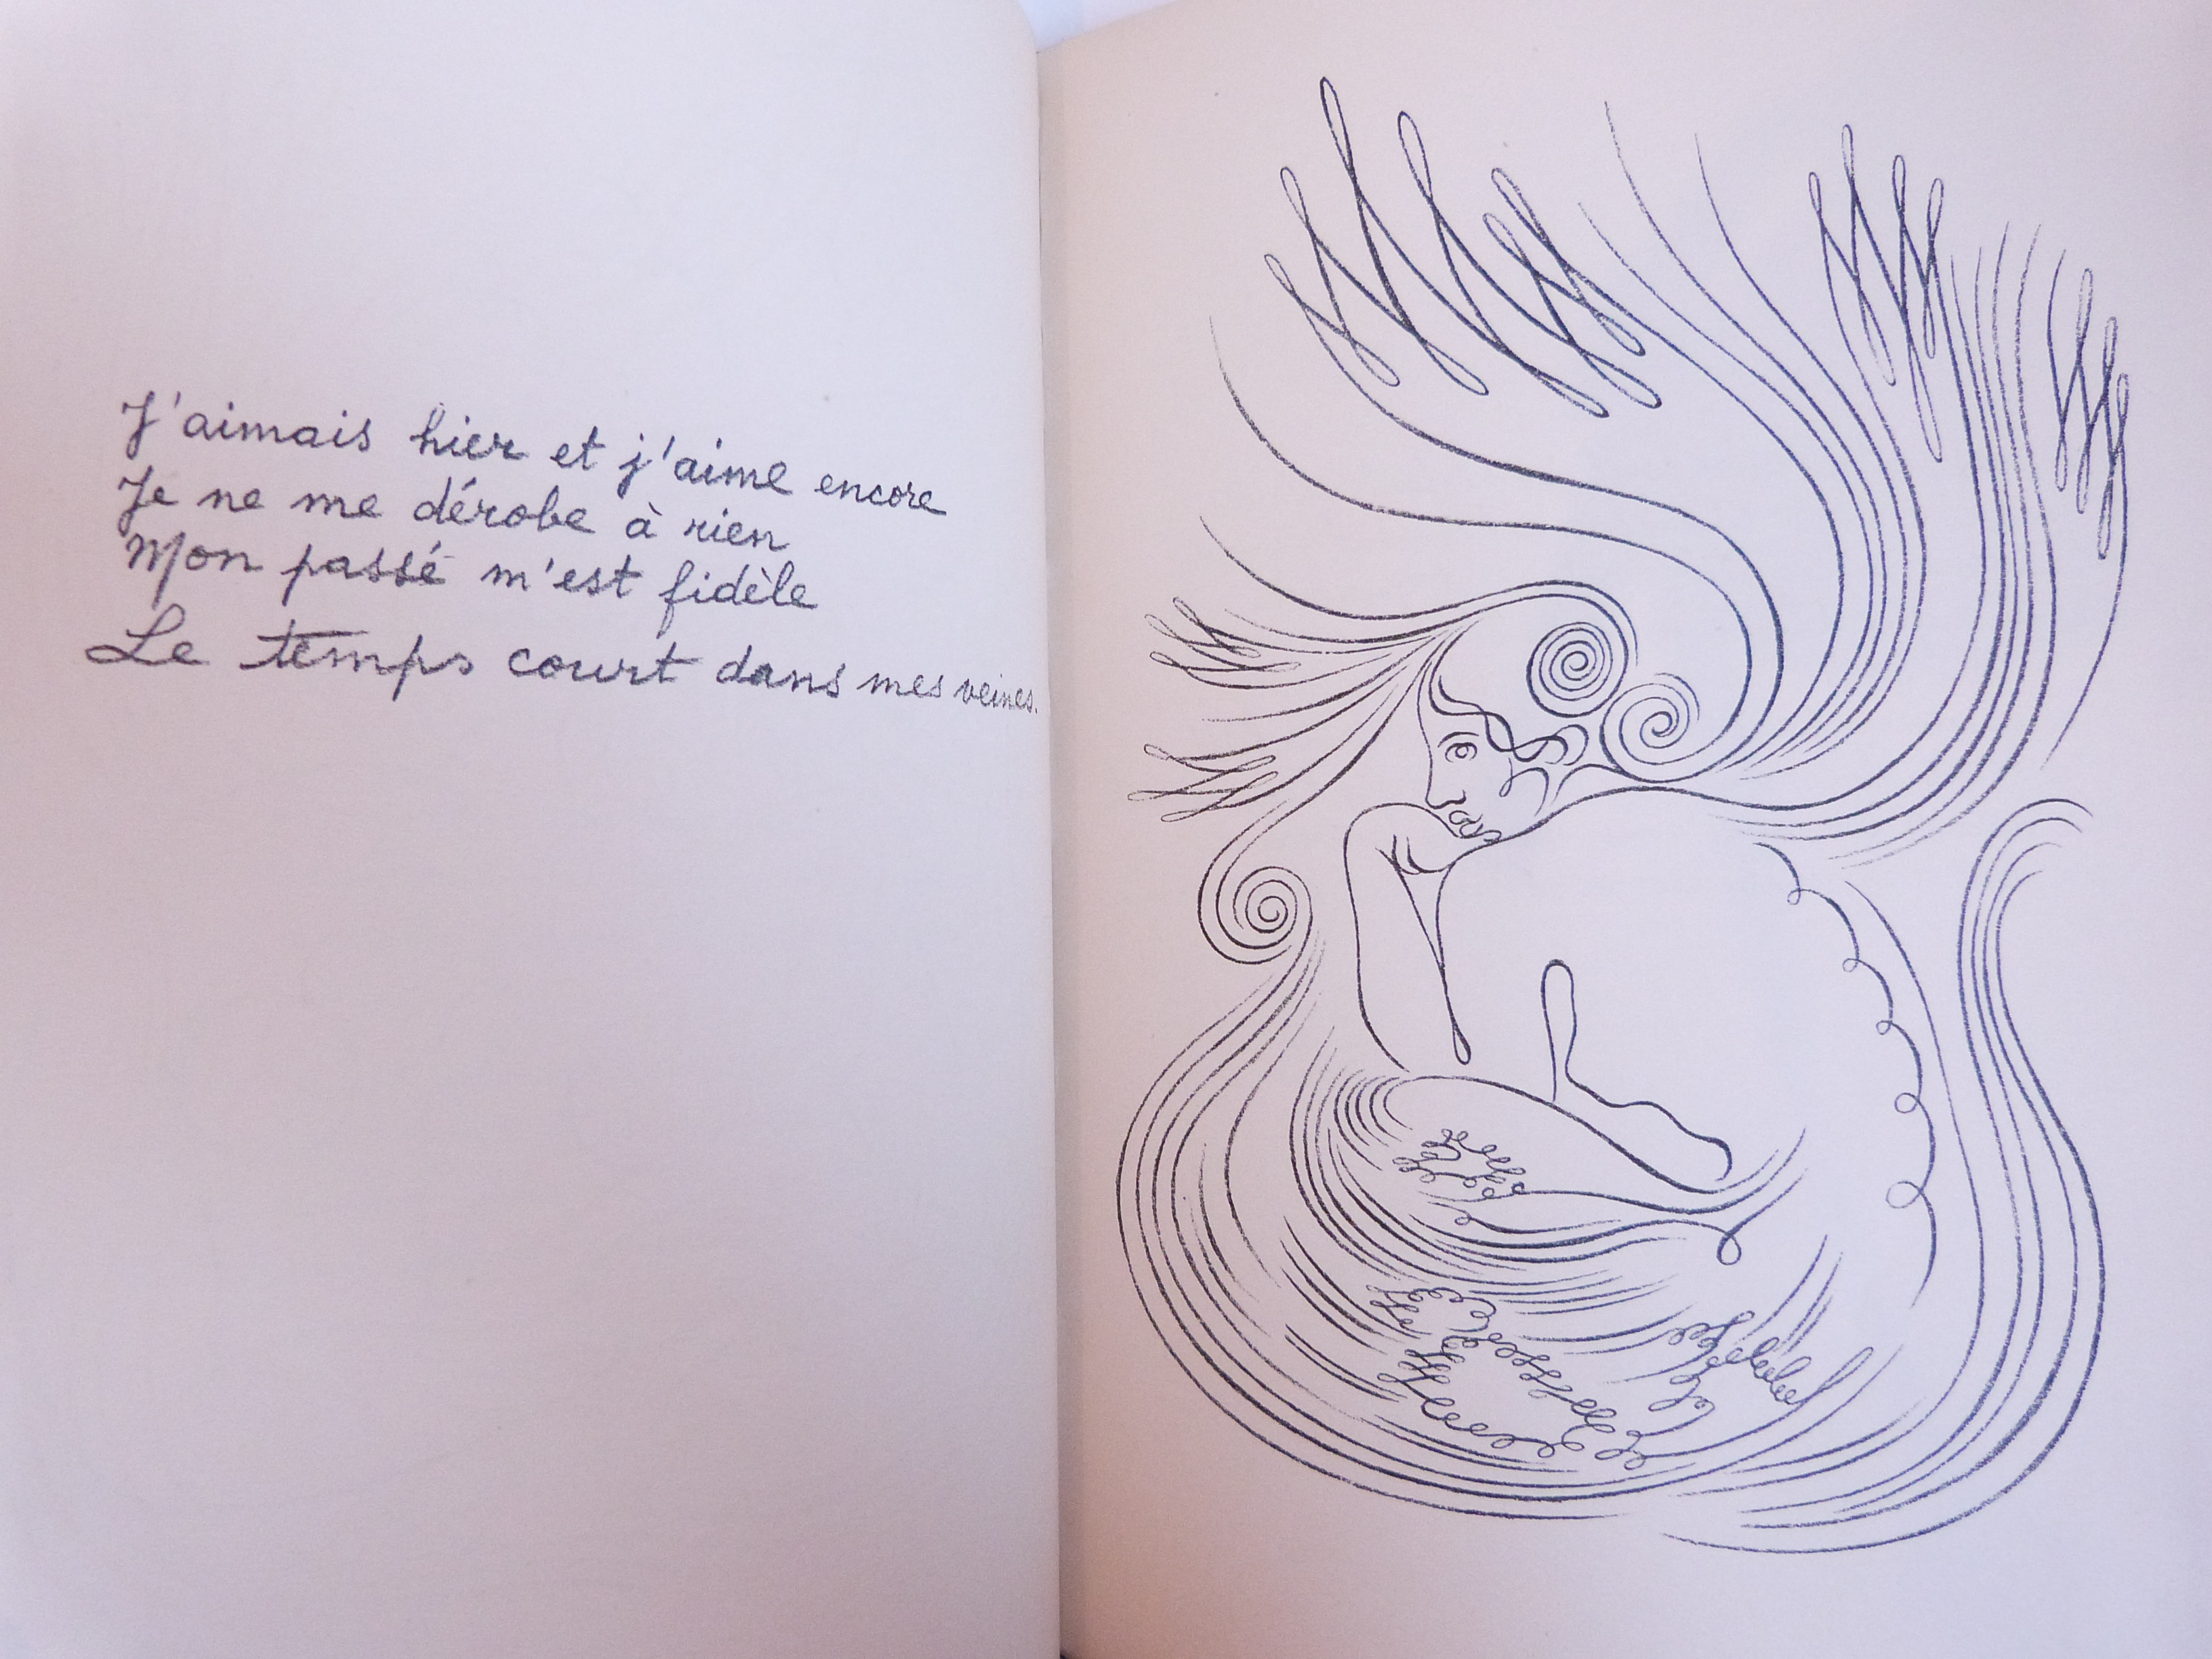 J'aimais hier et j'aime encore
Je ne me dérobe à rien
Mon passé m'est fidèle
Le temps court dans mes veines.